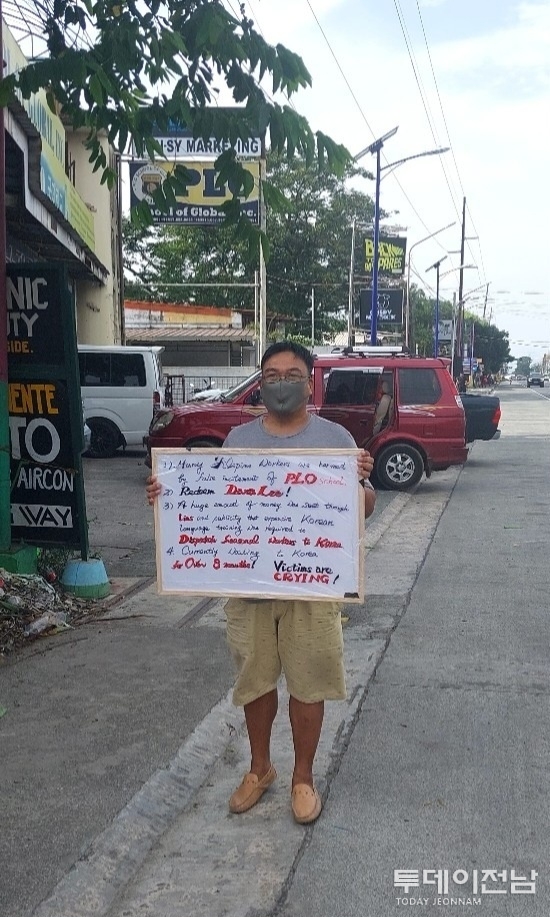 SY MARKETING
PLO
ol of Global
BACK
TO THE
NIC
TY
SIDE.
ENTE
TO
AIRCON
WAY
1). Many Filipino Workers are harmed
by false incitement of PLO School!
2). Redeem Deven Lee!
3) A huge amount of money was sent through
Lies and publicity that expensive Korean
language training was required to
Dispatch Seasonal Workers to Korea
4. Currently Waiting to Korea
for Over 8 months! Victims are
CRYING!
투데이전남
TODAY JEONNAM